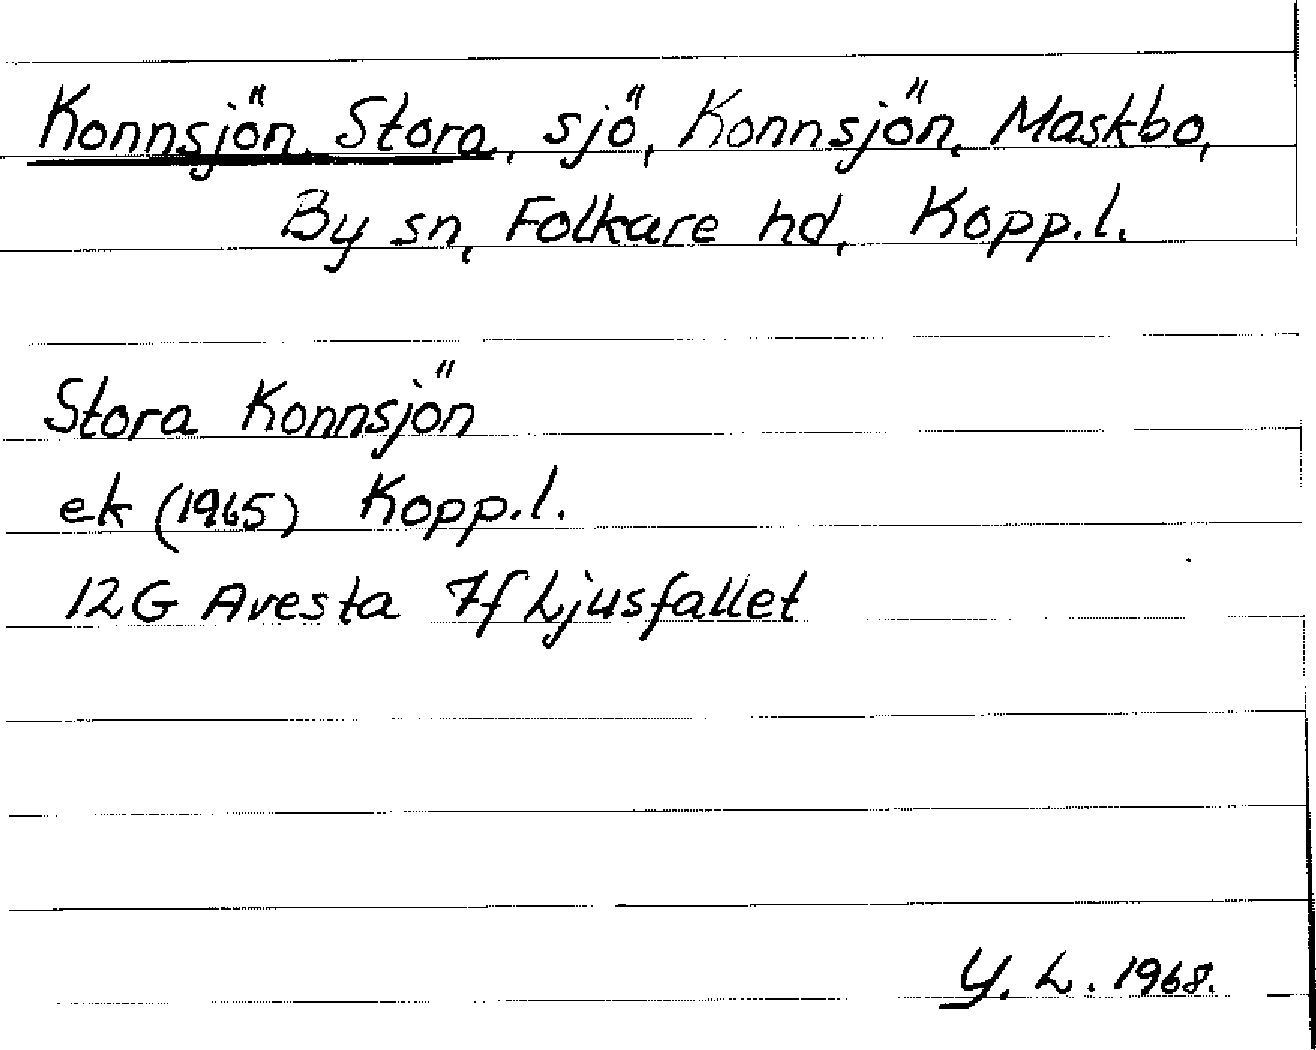 Konnsjön, Stora, sjö, Konnsjön, Maskbo,
By sn, Folkare hd, Kopp.l.
Stora Konnsjön
ek (1965) Kopp.l.
12G Avesta 7f Ljusfallet
Y. L. 1968.